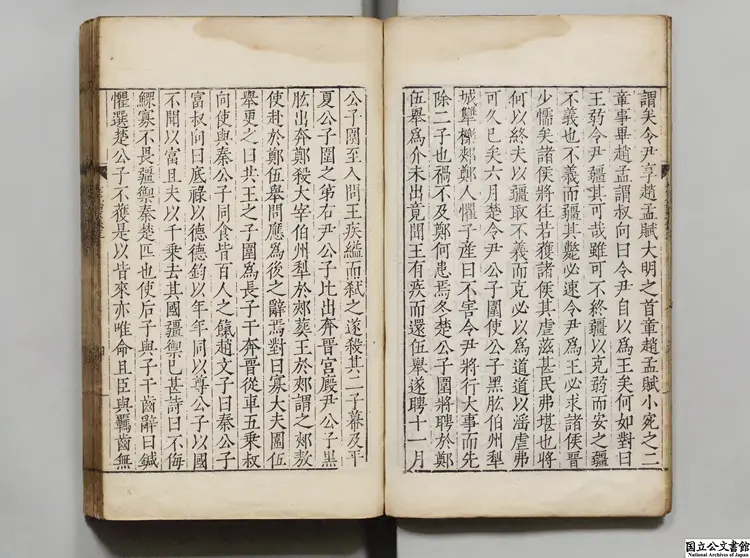 謂矣令尹享趙孟賦大明之首章趙孟賦小宛之二
章事畢趙孟謂叔向曰令尹自以爲王矣何如對曰
王弱令尹疆其可哉雖可不終疆以克弱而安之疆
不義也不義而疆其斃必速令尹爲王必求諸侯晉
少懦矣諸侯將往若獲諸侯其虐滋甚民弗堪也將
何以終夫以疆取不義而克必以爲道道以滛虐弗
可久已矣六月楚令尹公子圍使公子黑肱伯州犁
城犨櫟郟鄭人懼子産曰不害令尹將行大事而先
除二子也禍不及鄭何患焉冬楚公子圍將聘於鄭
伍舉爲介未出竟聞王有疾而還伍舉遂聘十一月
公子圍至入問王疾縊而弑之遂殺其二子幕及平
夏公子圍之弟右尹公子比出奔晉宮廐尹公子黑
肱出奔鄭殺大宰伯州犁於郟葬王於郟謂之郟敖
使赴於鄭伍舉問應爲後之辭焉對曰寡大夫圍伍
舉更之曰共王之子圍爲長子干奔晉從車五乗叔
向使與秦公子同食皆百人之餼趙文子曰秦公子
富叔向曰底祿以德德鈞以年年同以尊公子以國
不聞以富且夫以千乗去其國疆禦已甚詩曰不侮
鰥寡不畏疆禦秦楚匹也使后子與子干齒辭曰鍼
懼選楚公子不獲是以皆來亦唯命且臣與羈齒無
国立公文書館
National Archives of Japan